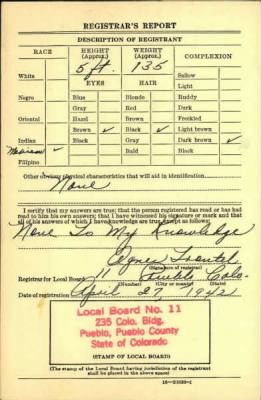 REGISTRAR'S REPORT
DESCRIPTION OF REGISTRANT
RACE HEIGHT (Approx.) WEIGHT (Approx.) COMPLEXION
5 ft. 135
White EYES HAIR Sallow
Light
Negro Blue Blonde Ruddy
Gray Red Dark
Oriental Hazel Brown Freckled
Brown ✓ Black ✓ Light brown
Indian Black Gray Dark brown ✓
Mexican ✓ Bald Black
Filipino
Other obvious physical characteristics that will aid in identification
None
I certify that my answers are true; that the person registered has read or has had
read to him his own answers; that I have witnessed his signature or mark and that
all of his answers of which I have knowledge are true, except as follows:
None To My Knowledge
Agnes
(Signature of registrar)
Registrar for Local Board 11 Pueblo Colo.
(Number) (City or county) (State)
Date of registration April 27, 1942
Local Board No. 11
235 Colo. Bldg.
Pueblo, Pueblo County
State of Colorado
(STAMP OF LOCAL BOARD)
(The stamp of the Local Board having jurisdiction of the registrant
shall be placed in the above space)